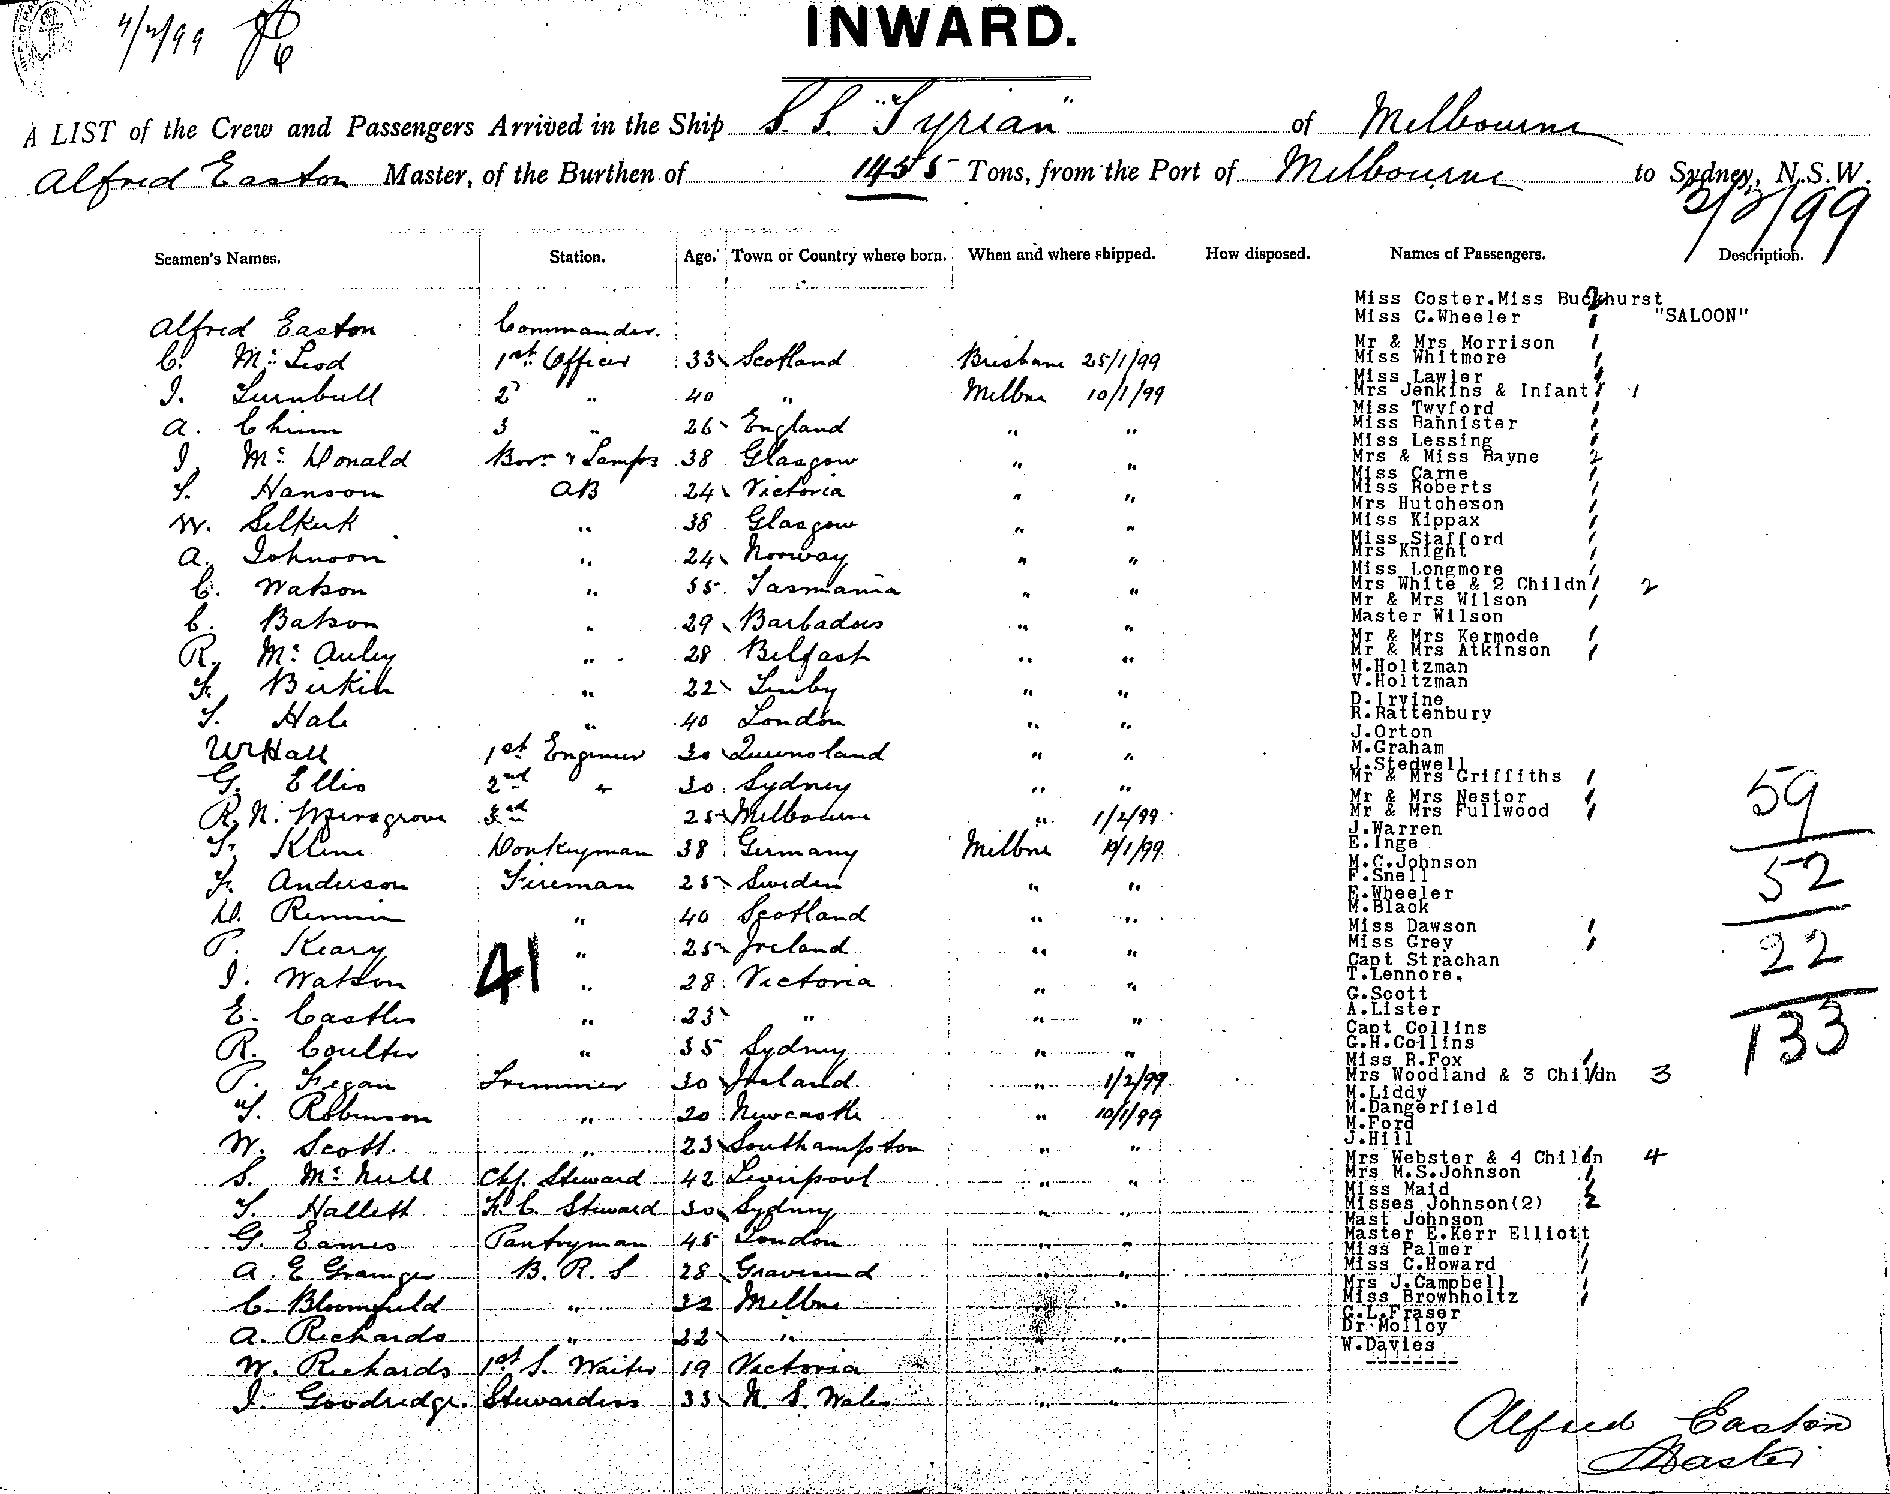 4/2/99
INWARD.
A LIST of the Crew and Passengers Arrived in the Ship S.S. "Syrian" of Melbourne
Alfred Easton Master, of the Burthen of 1455 Tons, from the Port of Melbourne to Sydney, N.S.W.
3/2/99
Seamen's Names. Station. Age. Town or Country where born. When and where shipped. How disposed. Names of Passengers. Description.
Alfred Easton Commander.
C. McLeod 1st Officer 33 Scotland Brisbane 25/1/99
J. Turnbull 2d " 40 " Melbne 10/1/99
A. Chinn 3 " 26 England " "
J. McDonald Bosn & Lamps 38 Glasgow " "
T. Hanson AB 24 Victoria " "
W. Selkirk " 38 Glasgow " "
A. Johnson " 24 Norway " "
C. Watson " 35 Tasmania " "
C. Batson " 29 Barbadoes " "
R. McAuley " 28 Belfast " "
F. Birkin " 22 Tenby " "
T. Hale " 40 London " "
W Hall 1st Engineer 30 Queensland " "
G. Ellis 2nd " 30 Sydney " "
R. N. Musgrove 3rd " 25 Melbourne " 1/2/99
F. Kline Donkeyman 38 Germany Melbne 10/1/99
F. Anderson Fireman 25 Sweden " "
D. Rennie " 40 Scotland " "
P. Keary " 25 Ireland " "
J. Watson " 28 Victoria " "
E. Castles " 23 " " "
R. Coulter " 35 Sydney " "
P. Fegan Trimmer 30 Ireland " 1/2/99
T. Robinson " 20 Newcastle " 10/1/99
W. Scott " 23 Southampton " "
S. McNeill Chf. Steward 42 Liverpool " "
T. Hallett F. C. Steward 30 Sydney " "
G. Eames Pantryman 45 London " "
A. E Grainger B. R. S 28 Gravesend " "
C. Bloomfield " 32 Melbne " "
A. Richards " 22 " " "
W. Richards 1st S. Waiter 19 Victoria " "
J. Goodredge. Stewardess 33 N. S. Wales " "
41
Miss Coster.Miss Buckhurst 2
Miss C.Wheeler "SALOON"
Mr & Mrs Morrison
Miss Whitmore
Miss Lawler
Mrs Jenkins & Infant 1
Miss Twyford
Miss Bannister
Miss Lessing
Mrs & Miss Bayne 2
Miss Carne
Miss Roberts
Mrs Hutcheson
Miss Kippax
Miss Stafford
Mrs Knight
Miss Longmore
Mrs White & 2 Childn 2
Mr & Mrs Wilson
Master Wilson
Mr & Mrs Kermode
Mr & Mrs Atkinson
M.Holtzman
V.Holtzman
D.Irvine
R.Rattenbury
J.Orton
M.Graham
J.Stedwell
Mr & Mrs Griffiths
Mr & Mrs Nestor
Mr & Mrs Fullwood
J.Warren
E.Inge
M.C.Johnson
F.Snell
E.Wheeler
M.Black
Miss Dawson
Miss Grey
Capt Strachan
T.Lennore.
G.Scott
A.Lister
Capt Collins
G.H.Collins
Miss R.Fox
Mrs Woodland & 3 Childn 3
M.Liddy
M.Dangerfield
M.Ford
J.Hill
Mrs Webster & 4 Childn 4
Mrs M.S.Johnson
Miss Maid
Misses Johnson(2) 2
Mast Johnson
Master E.Kerr Elliott
Miss Palmer
Miss C.Howard
Mrs J.Campbell
Miss Brownholtz
G.L.Fraser
Dr Molloy
W.Davies
--------
59
52
22
133
Alfred Easton
Master